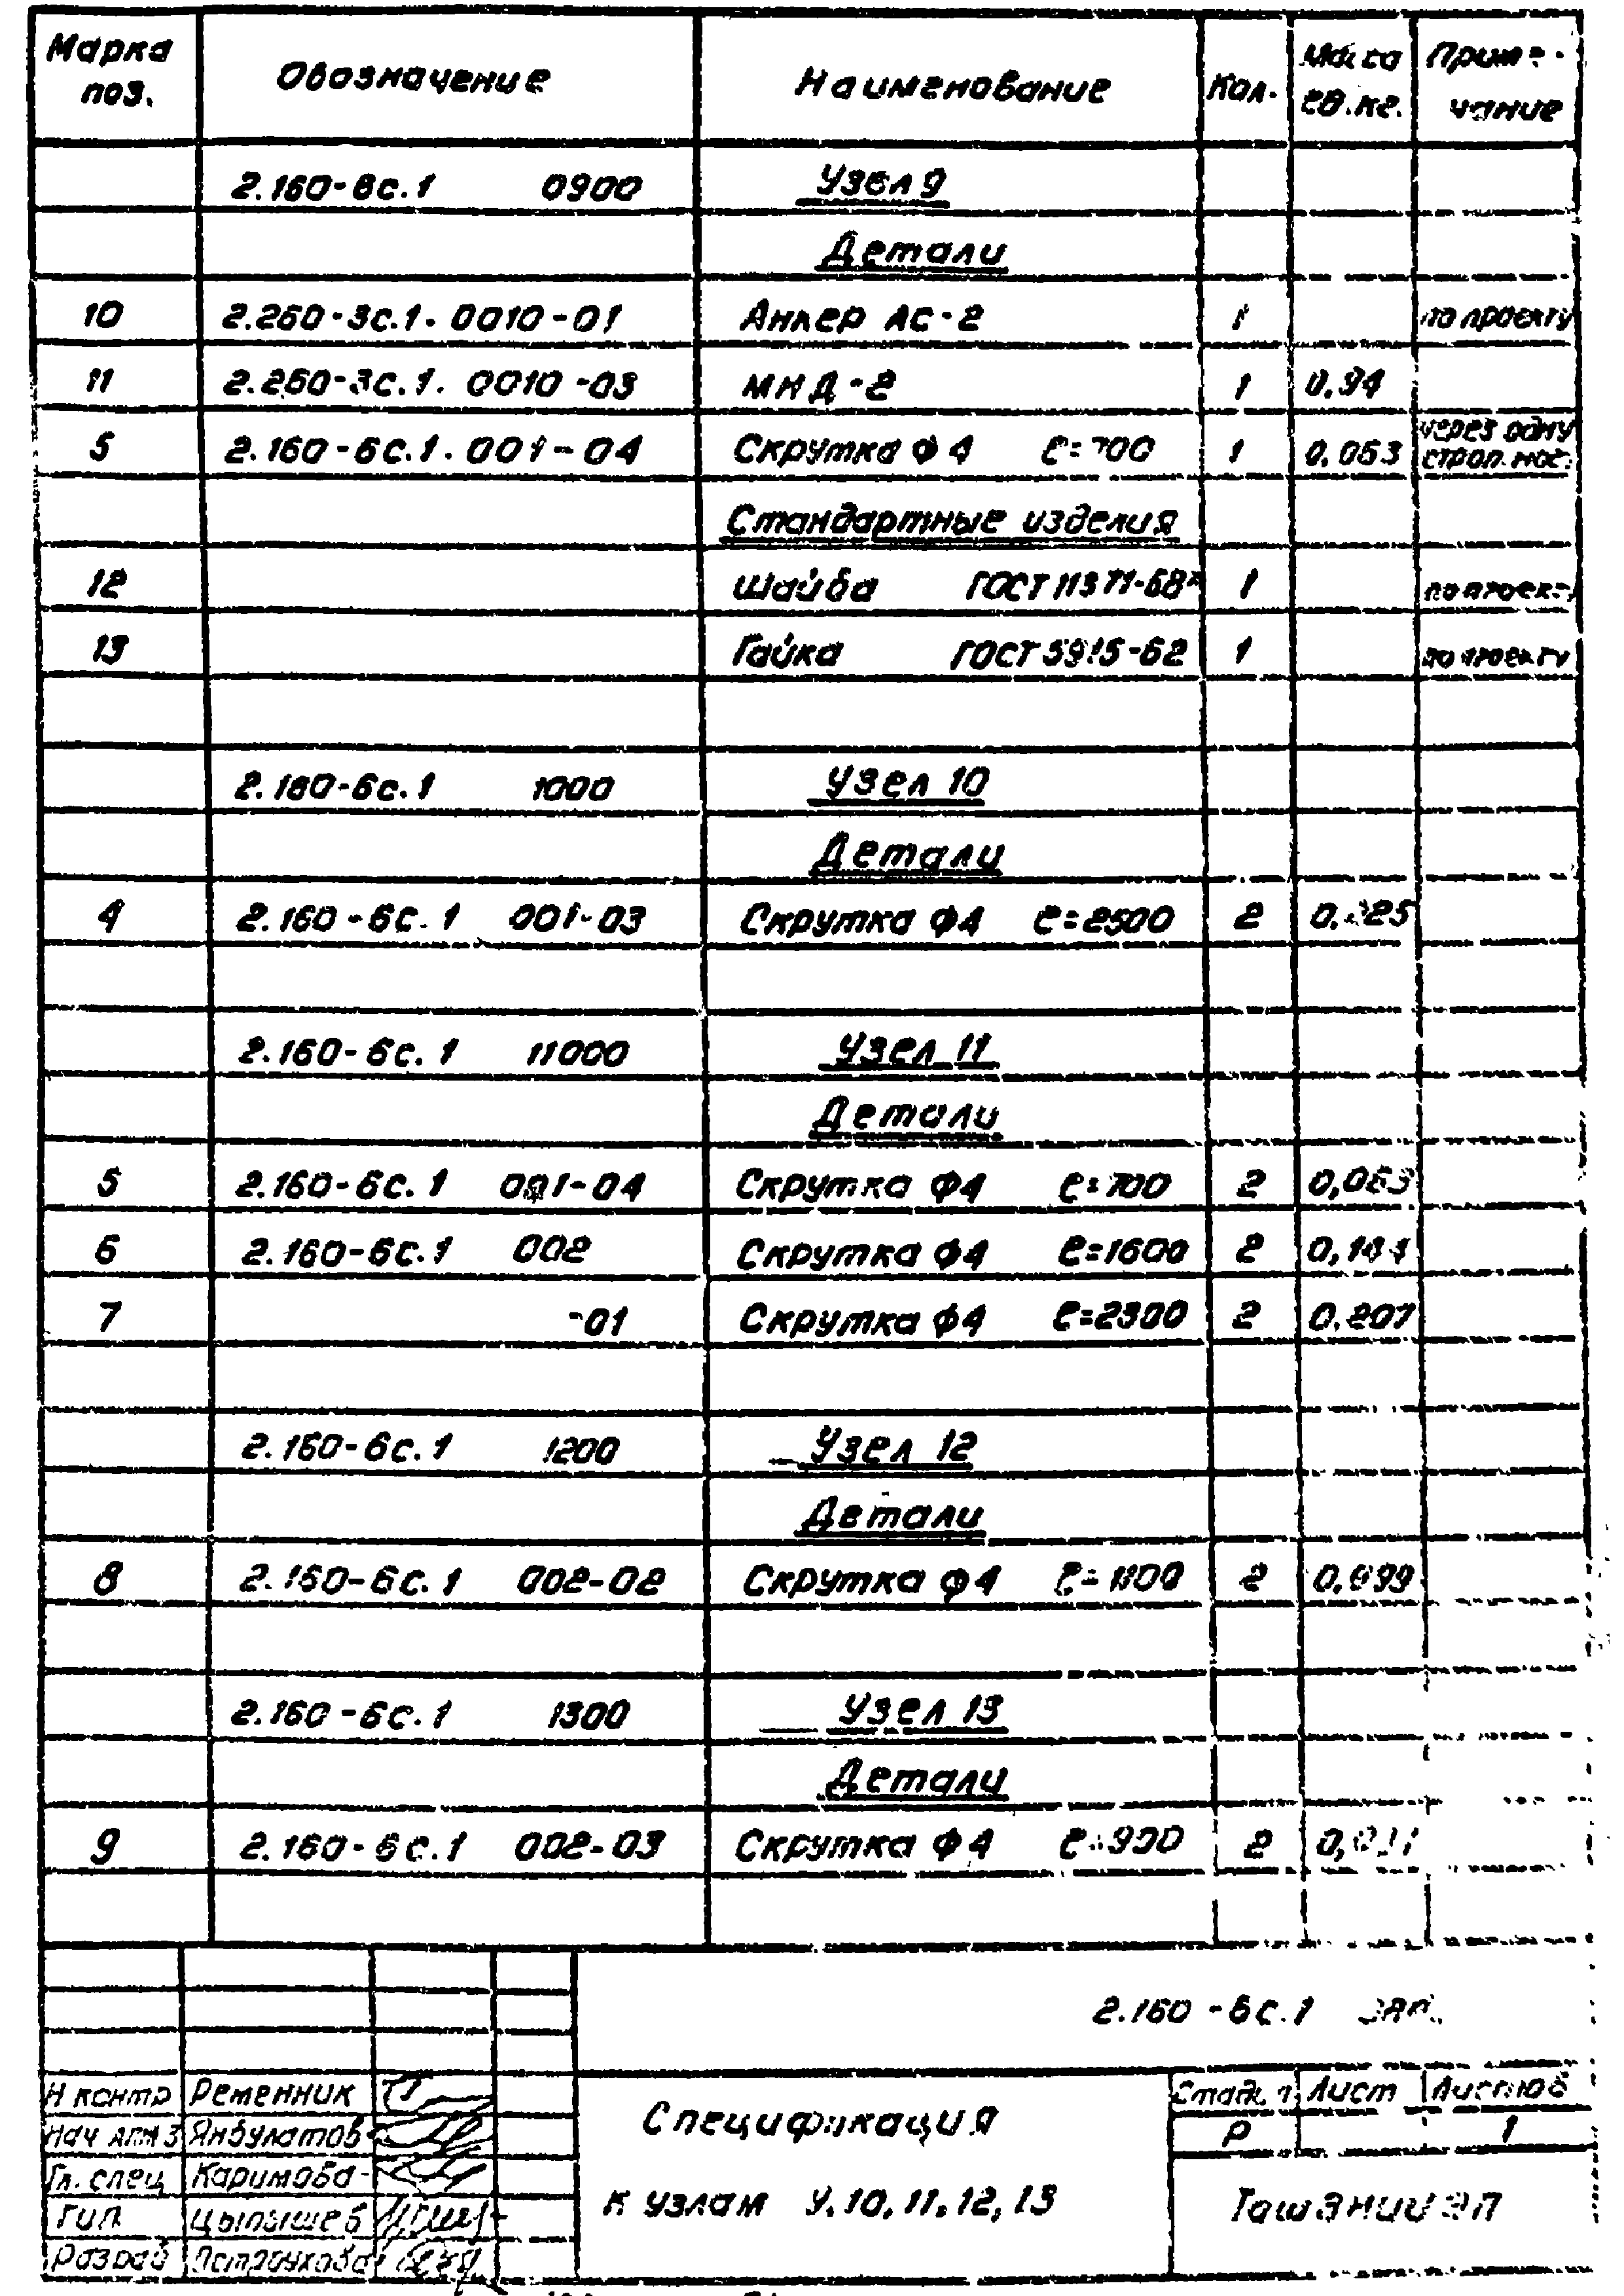 Марка поз. Обозначение Наименование Кол. Масса ед.кг. Приме-чание
2.160-6с.1 0900 Узел 9
Детали
10 2.260-3с.1. 0010-01 Анкер АС-2 1 по проекту
11 2.260-3с.1. 0010-03 МНД-2 1 0,94
5 2.160-6с.1. 001-04 Скрутка Ф4 ℓ=700 1 0,063 через одну строп. ног.
Стандартные изделия
12 Шайба ГОСТ 11371-68* 1 по проекту
13 Гайка ГОСТ 5915-62 1 по проекту
2.160-6с.1 1000 Узел 10
Детали
4 2.160-6с.1 001-03 Скрутка Ф4 ℓ=2500 2 0,225
2.160-6с.1 11000 Узел 11
Детали
5 2.160-6с.1 001-04 Скрутка Ф4 ℓ=700 2 0,063
6 2.160-6с.1 002 Скрутка Ф4 ℓ=1600 2 0,144
7 -01 Скрутка Ф4 ℓ=2300 2 0,207
2.160-6с.1 1200 Узел 12
Детали
8 2.160-6с.1 002-02 Скрутка Ф4 ℓ=1100 2 0,099
2.160-6с.1 1300 Узел 13
Детали
9 2.160-6с.1 002-03 Скрутка Ф4 ℓ=900 2
2.160-6с.1
Н контр Ременник
Нач Янбулатов
Гл. спец Каримова
ГИП Цыпышев
Разраб
Спецификация
к узлам 9,10,11,12,13
Стадия Лист Листов
Р 1
ТашЗНИИЭП